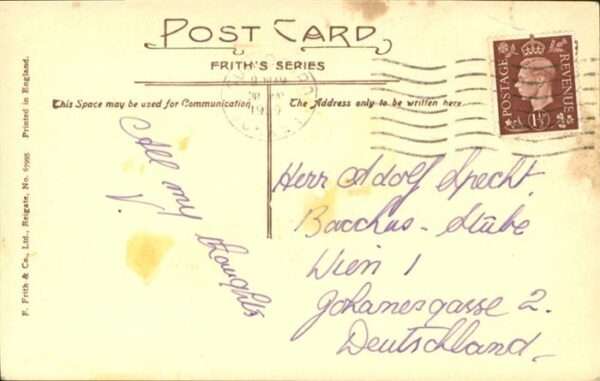 POST CARD
FRITH'S SERIES
This Space may be used for Communication.
The Address only to be written here.
POSTAGE
REVENUE
1½D
All my thoughts
V.
Herr Adolf Specht.
Bacchus-Stübe
Wien 1
Johanesgasse 2.
Deutschland.
F. Frith & Co., Ltd., Reigate, No. 67995 Printed in England.